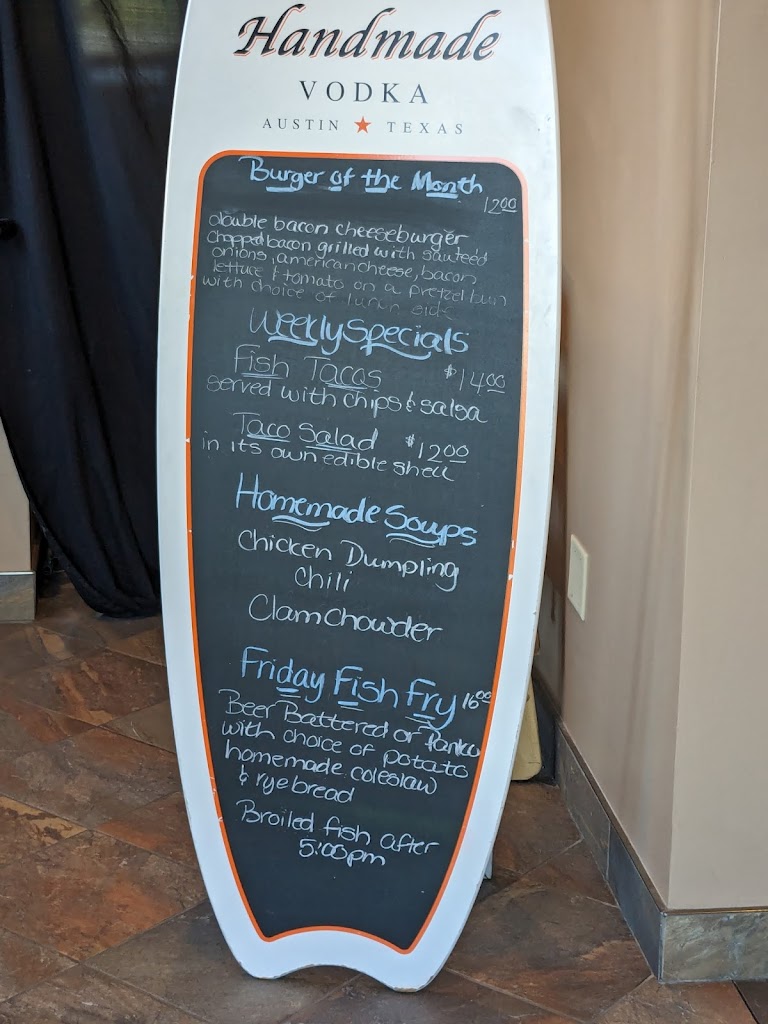 Handmade
VODKA
AUSTIN ★ TEXAS
Burger of the Month
12.00
double bacon cheeseburger
chopped bacon grilled with sauteed
onions, american cheese, bacon
lettuce & tomato on a pretzel bun
with choice of lunch side
Weekly Specials
Fish Tacos $14.00
served with chips & salsa
Taco Salad $12.00
in its own edible shell
Homemade Soups
Chicken Dumpling
Chili
Clam Chowder
Friday Fish Fry 16.00
Beer Battered or Panko
with choice of potato
homemade coleslaw
& rye bread
Broiled fish after
5:00pm